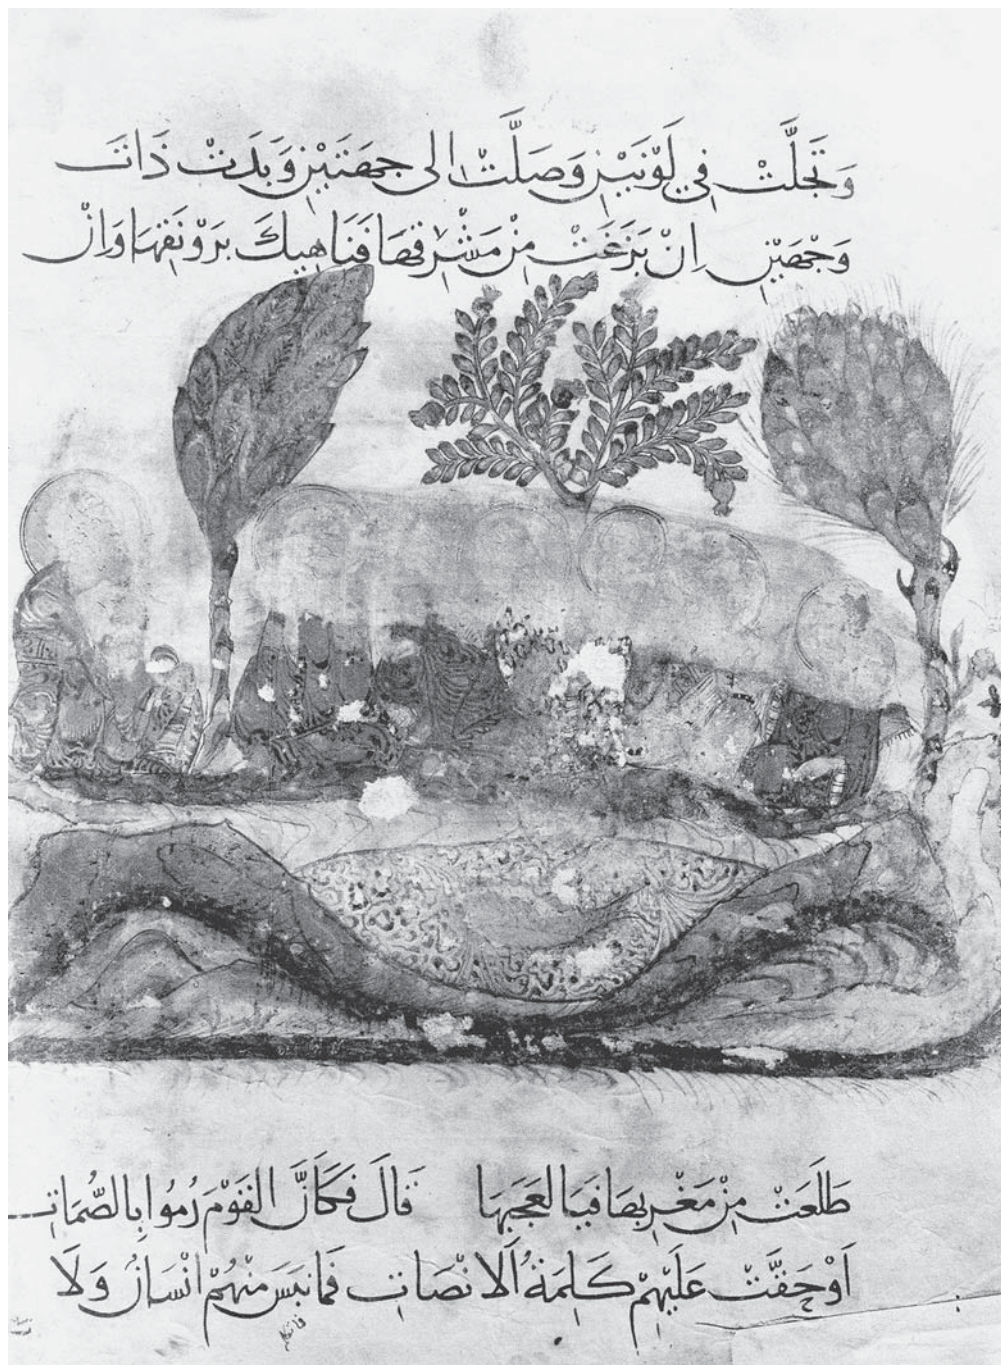 وَتَجَلَّتْ فِي لَوْنَيْنِ وَصَلَّتْ الى جِهَتَيْنِ وَبَدَتْ ذَاتَ
وَجْهَيْنِ اِنْ بَزَغَتْ مِنْ مَشْرِقِهَا فَنَاهِيكَ بِرَوْنَقِهَا وَاِنْ
طَلَعَتْ مِنْ مَغْرِبِهَا فَيَا لِعَجَبِهَا قَالَ فَكَاَنَّ القَوْمَ رُمُوا بِالصُّمَاتِ
اَوْ حَقَّتْ عَلَيْهِمْ كَلِمَةُ اَلانْصَاتِ فَمَا نَبَسَ مِنْهُمْ اِنْسَانٌ وَلَا